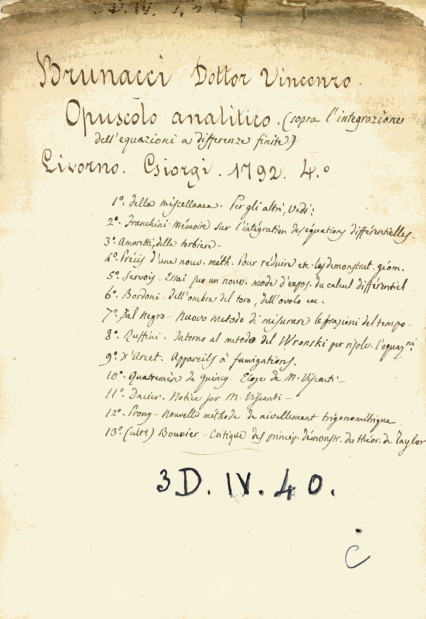 3 D. IV. 40
Brunacci Dottor Vincenzo.
Opuscolo analitico. (sopra l'integrazione
dell'equazioni a differenze finite)
Livorno. Giorgi. 1792. 4.º
1º. della miscellanea. Per gli altri, Vedi:
2º. Franchini. Mémoire sur l'intégration des equations différentielles.
3º. Amoretti, delle torbiere.
4º. Précis d'une nouv. méth. pour reduire etc. les demonstrat. géom.
5º. Servois. Essai sur un nouv. mode d'expos. du calcul différentiel
6º. Bordoni. dell'ombra del toro, dell'ovolo ec.
7º. Dal Negro. Nuovo metodo di misurare le frazioni del tempo.
8º. Ruffini. Intorno al metodo del Wronski per risolv. l'equaz.ni
9º. D'Arcet. Appareils à fumigations.
10º. Quatremère de Quincy. Eloge de M. Visconti.
11º. Dacier. Notice sur M. Visconti.
12º. Prony. Nouvelle méthode de nivellement trigonométrique
13º. (ult.º) Bouvier. Critique des princip. démonstr. du théor. de Taylor
3D. IV. 40.